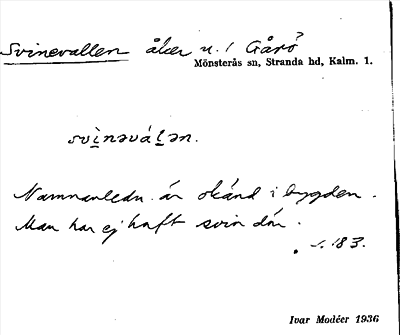 Svinevallen åker u. / Gårö?
Mönsterås sn, Stranda hd, Kalm. 1.
svìnəváḷən.
Namnanledn. är okänd i bygden.
Man har ej haft svin där.
s. 183.
Ivar Modéer 1936